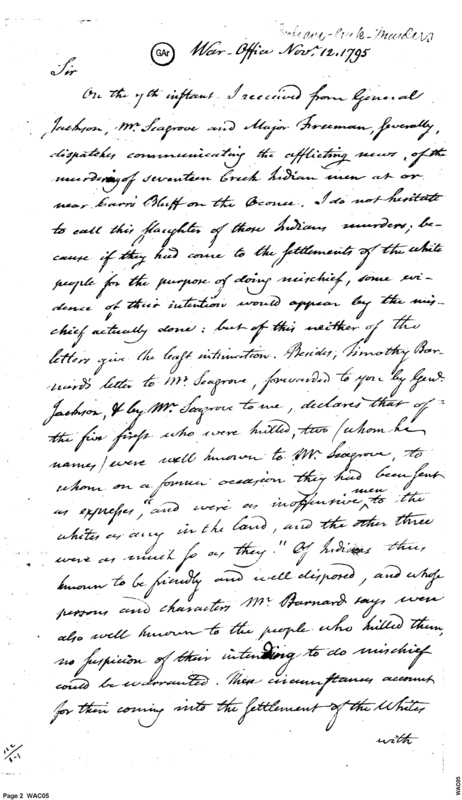 Indians - Creek - Murders
GAr
War-Office Novr. 12. 1795
Sir
On the 7th instant I received from General
Jackson, Mr. Seagrove and Major Freeman, severally,
dispatches communicating the afflicting news, of the
murdering of seventeen Creek Indian men at or
near Carrs Bluff on the Oconee. I do not hesitate
to call this slaughter of those Indians murders; be-
cause if they had come to the settlements of the white
people for the purpose of doing mischief, some evi-
dence of their intention would appear by the mis-
chief actually done: but of this neither of the
letters give the least intimation. Besides, Timothy Bar-
nard's letter to Mr. Seagrove, forwarded to you by Genl.
Jackson, & by Mr. Seagrove to me, declares that of
the five first who were killed, two (whom he
names) were well known to Mr. Seagrove, to
whom on a former occasion they had been sent
as expresses, "and were as inoffensive men to the
whites as any in the land, and the other three
were as much so as they." Of Indians thus
known to be friendly and well disposed, and whose
persons and characters Mr. Barnard says were
also well known to the people who killed them,
no suspicion of their intending to do mischief
could be warranted. These circumstances account
for their coming into the settlement of the Whites
with
Page 2 WAC05
WAC05